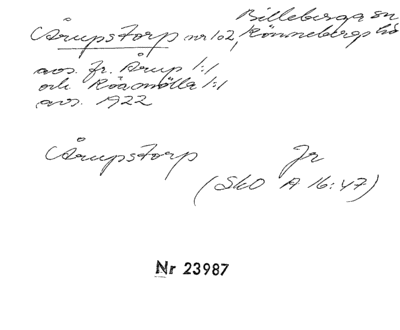 Billeberga sn
Årupstorp nr 1o2, Rönnebergs hd
avs. fr. Årup 1:1
och Rödmölla 1:1
avs. 1922
Årupstorp Jr
(SkO A 16:47)
Nr 23987